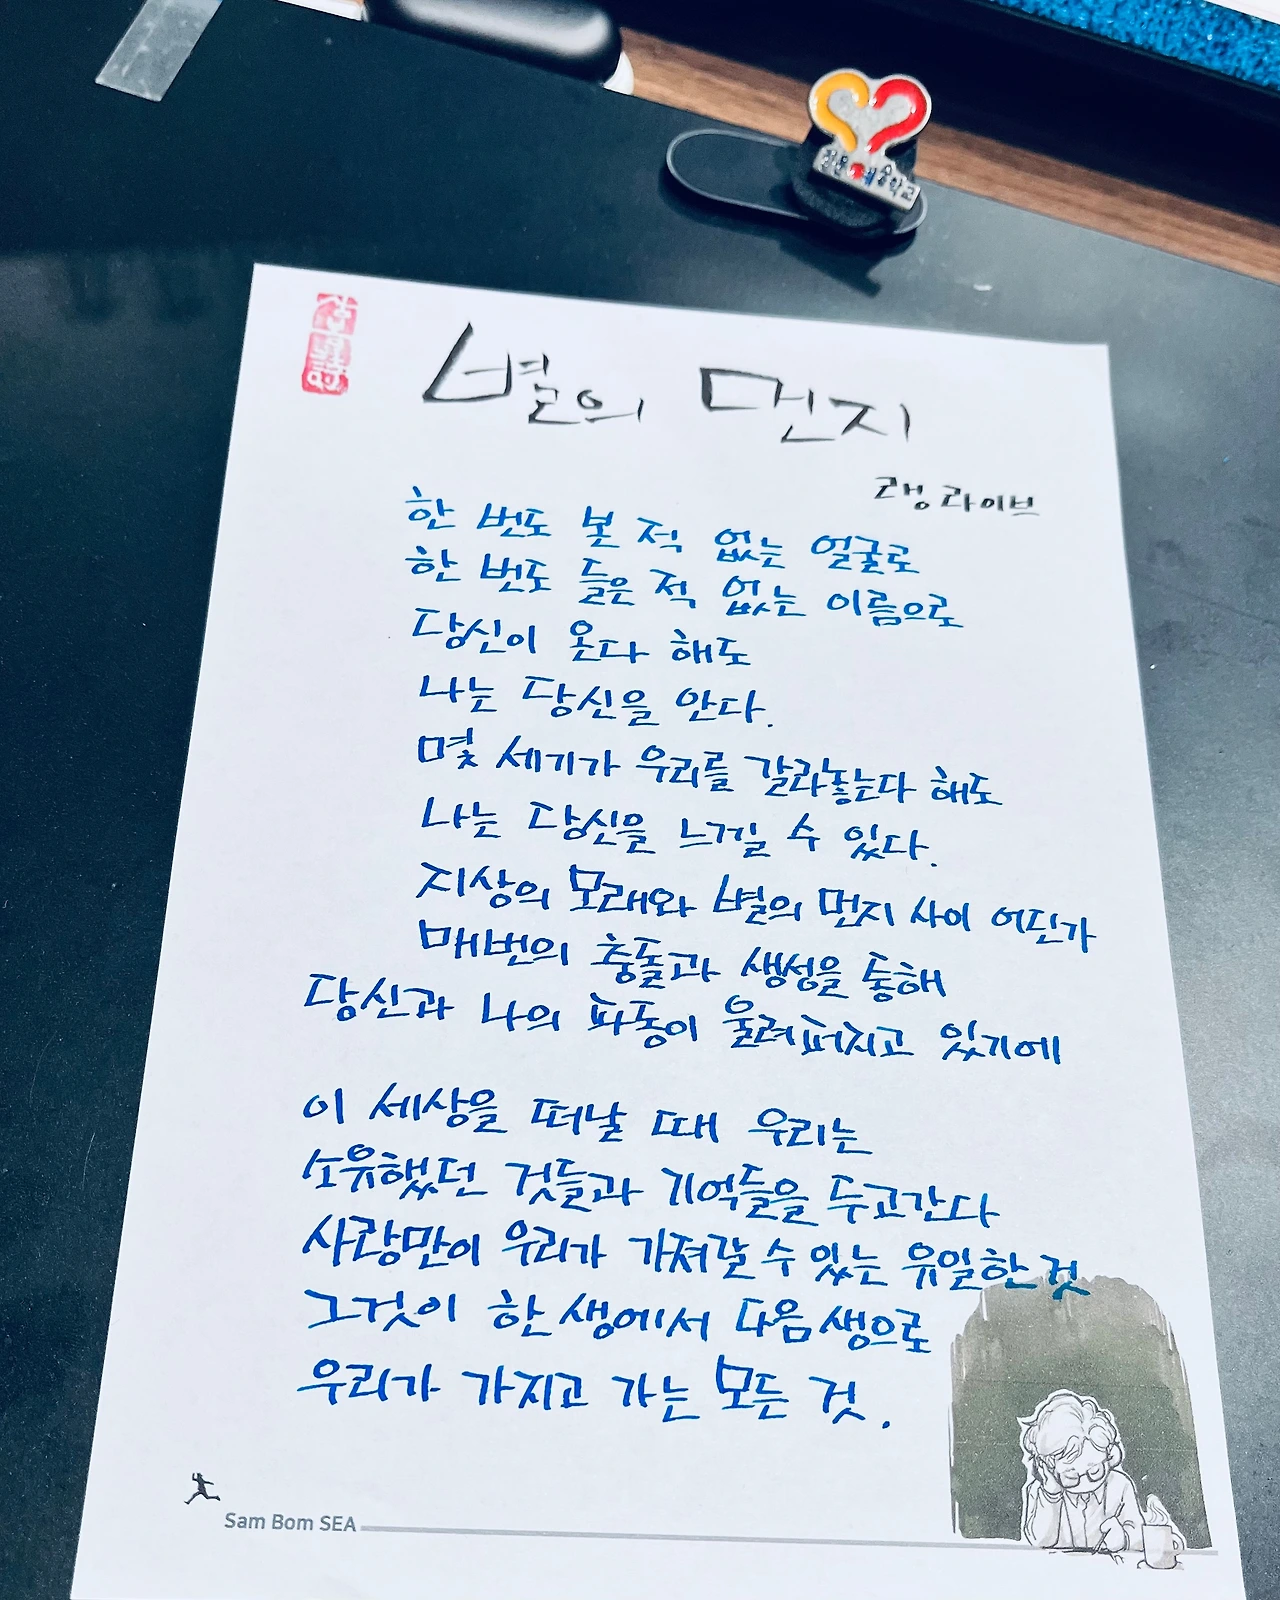 별의 먼지
랭 라이브
한 번도 본 적 없는 얼굴로
한 번도 들은 적 없는 이름으로
당신이 온다 해도
나는 당신을 안다.
몇 세기가 우리를 갈라놓는다 해도
나는 당신을 느낄 수 있다.
지상의 모래와 별의 먼지 사이 어딘가
매번의 충돌과 생성을 통해
당신과 나의 파동이 울려퍼지고 있기에
이 세상을 떠날 때 우리는
소유했던 것들과 기억들을 두고간다
사랑만이 우리가 가져갈 수 있는 유일한 것
그것이 한 생에서 다음 생으로
우리가 가지고 가는 모든 것.
Sam Bom SEA